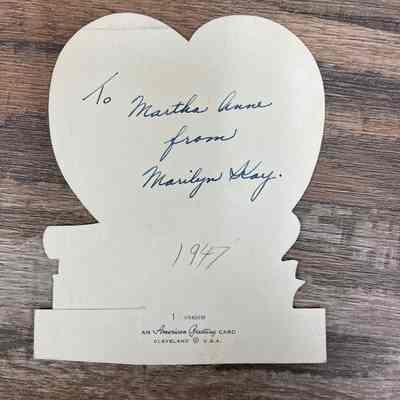 To Martha Anne
from
Marilyn Kay.
1947
1
AN American Greeting CARD
CLEVELAND U.S.A.